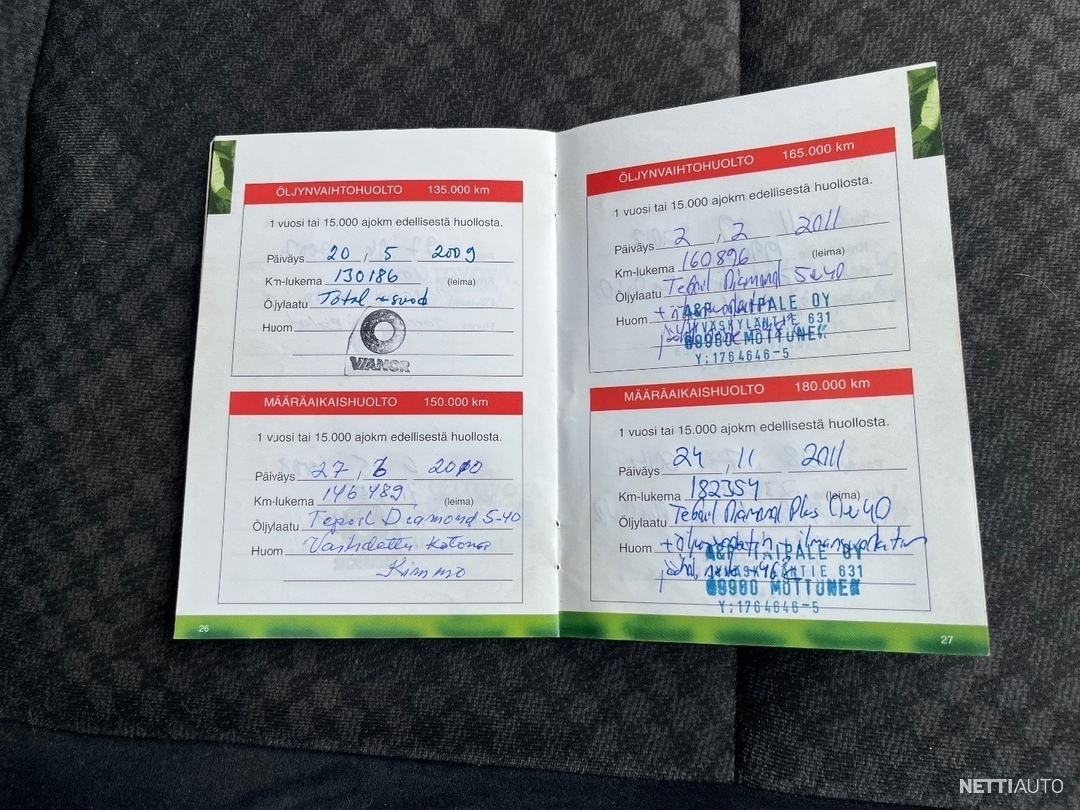 ÖLJYNVAIHTOHUOLTO 135.000 km
1 vuosi tai 15.000 ajokm edellisestä huollosta.
Päiväys 20 , 5 2009
Km-lukema 130186 (leima)
Öljylaatu Total
Huom
VIANOR
MÄÄRÄAIKAISHUOLTO 150.000 km
1 vuosi tai 15.000 ajokm edellisestä huollosta.
Päiväys 27 , 6 2010
Km-lukema 146489 (leima)
Öljylaatu Teboil Diamond 5-40
Huom Vaihdettu kotona
Kimmo
26
ÖLJYNVAIHTOHUOLTO 165.000 km
1 vuosi tai 15.000 ajokm edellisestä huollosta.
Päiväys 2 , 2 2011
Km-lukema 160896 (leima)
Öljylaatu Teboil Diamond 5w40
Huom +
A&P TAIPALE OY
JYVÄSKYLÄNTIE 631
Y:1764646-5
MÄÄRÄAIKAISHUOLTO 180.000 km
1 vuosi tai 15.000 ajokm edellisestä huollosta.
Päiväys 24 , 11 2011
Km-lukema 182354 (leima)
Öljylaatu Teboil Diamond Plus 40
Huom + öljynsuodatin + ilmansuodatin
A&P TAIPALE OY
JYVÄSKYLÄNTIE 631
Y:1764646-5
27
NETTIAUTO